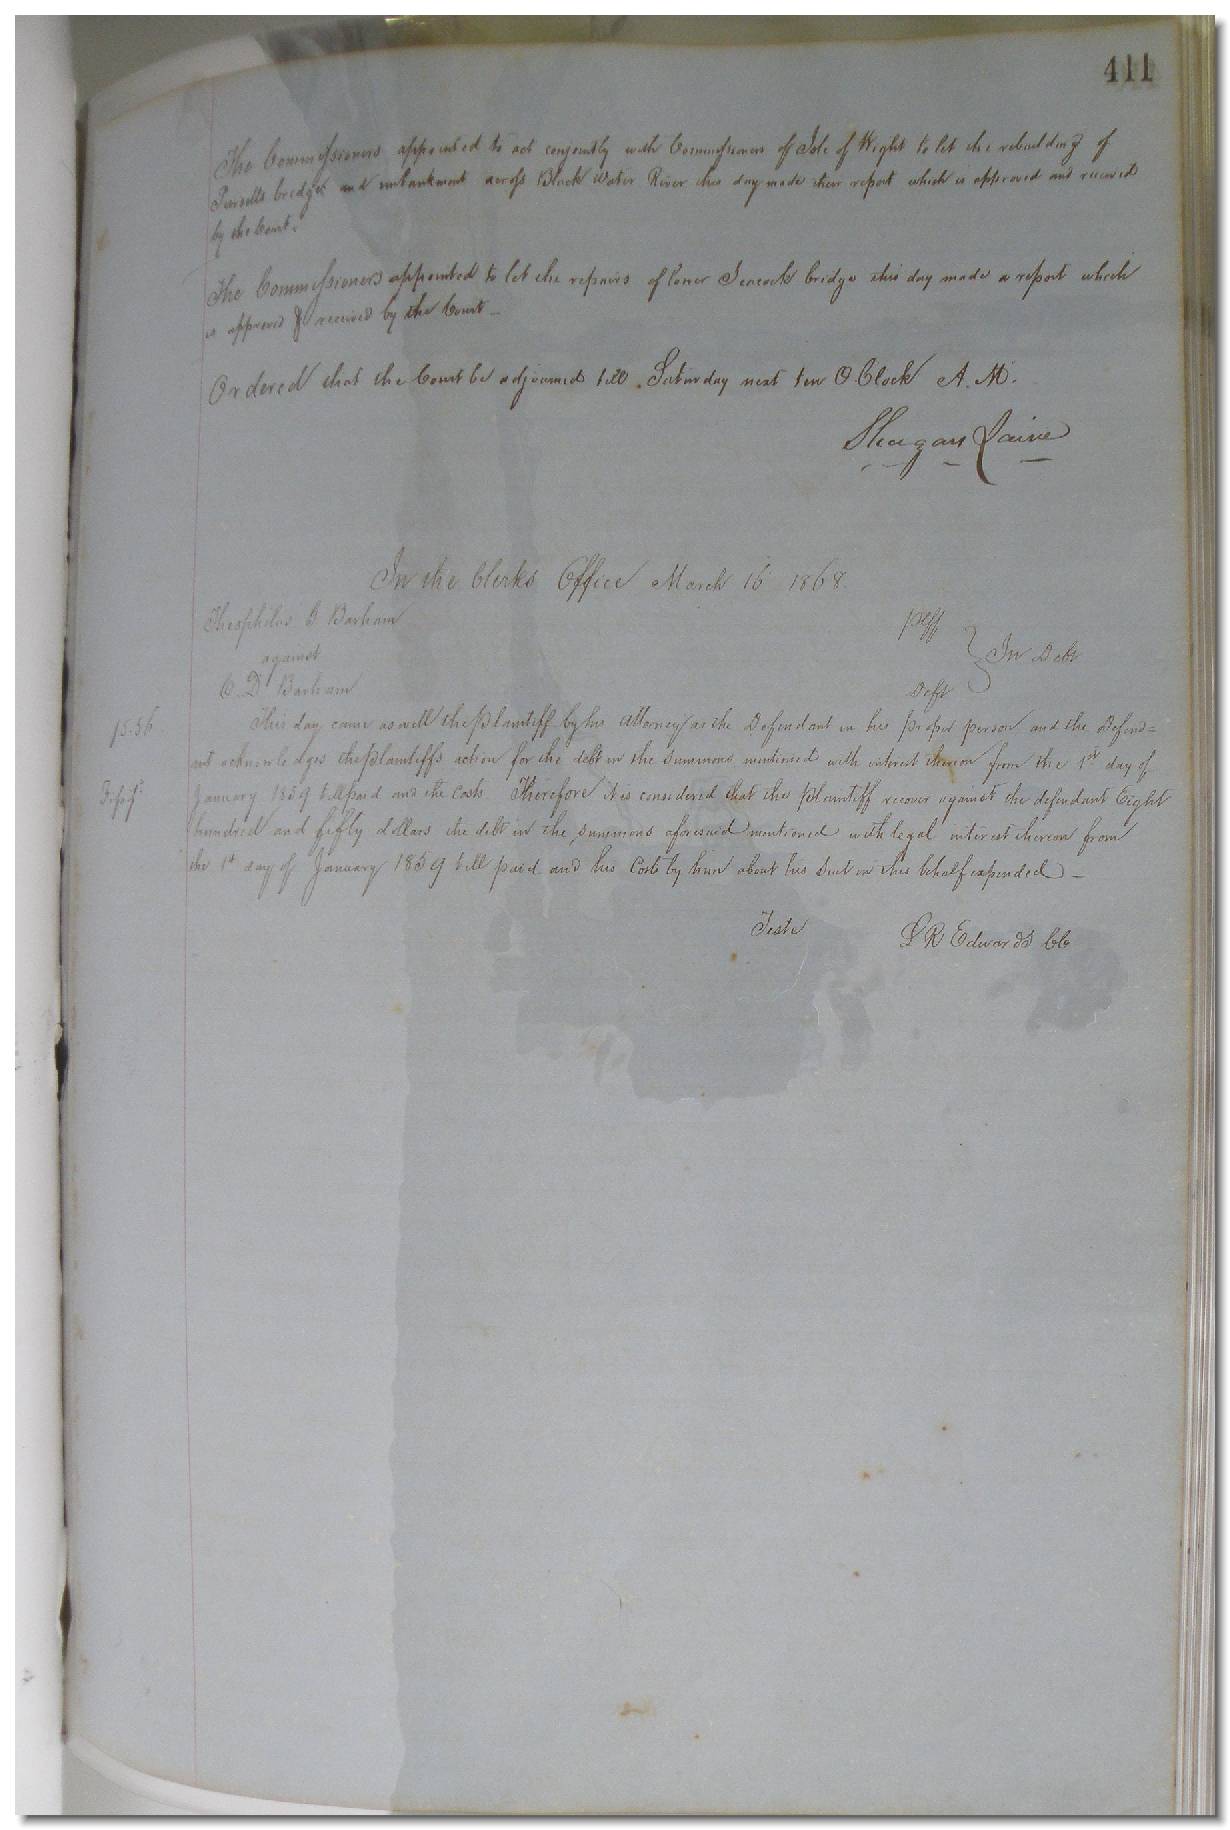 411
The Commissioners appointed to act conjointly with Commissioners of Isle of Wight to let the rebuilding of
bridge and embankment across Black Water River this day made their report which is approved and received
by the Court.
The Commissioners appointed to let the repairs of lower Seacock bridge this day made a report which
is approved & received by the Court
Ordered that the Court be adjourned till Saturday next ten O Clock A. M.
In the Clerks Office March 16 1868
Theophilus Barham
plff
against
In Debt
C. D. Barham
Deft
15.56
This day came as well the plaintiff by his Attorney as the Defendant in his proper person and the Defend=
ant acknowledges the plaintiffs action for the debt in the summons mentioned with interest thereon from the 1st day of
January 1859 till paid and the costs Therefore it is considered that the plaintiff recover against the defendant Eight
hundred and fifty dollars the debt in the summons aforesaid mentioned with legal interest thereon from
the 1st day of January 1859 till paid and his Costs by him about his Suit in this behalf expended –
Teste
L R Edwards CC